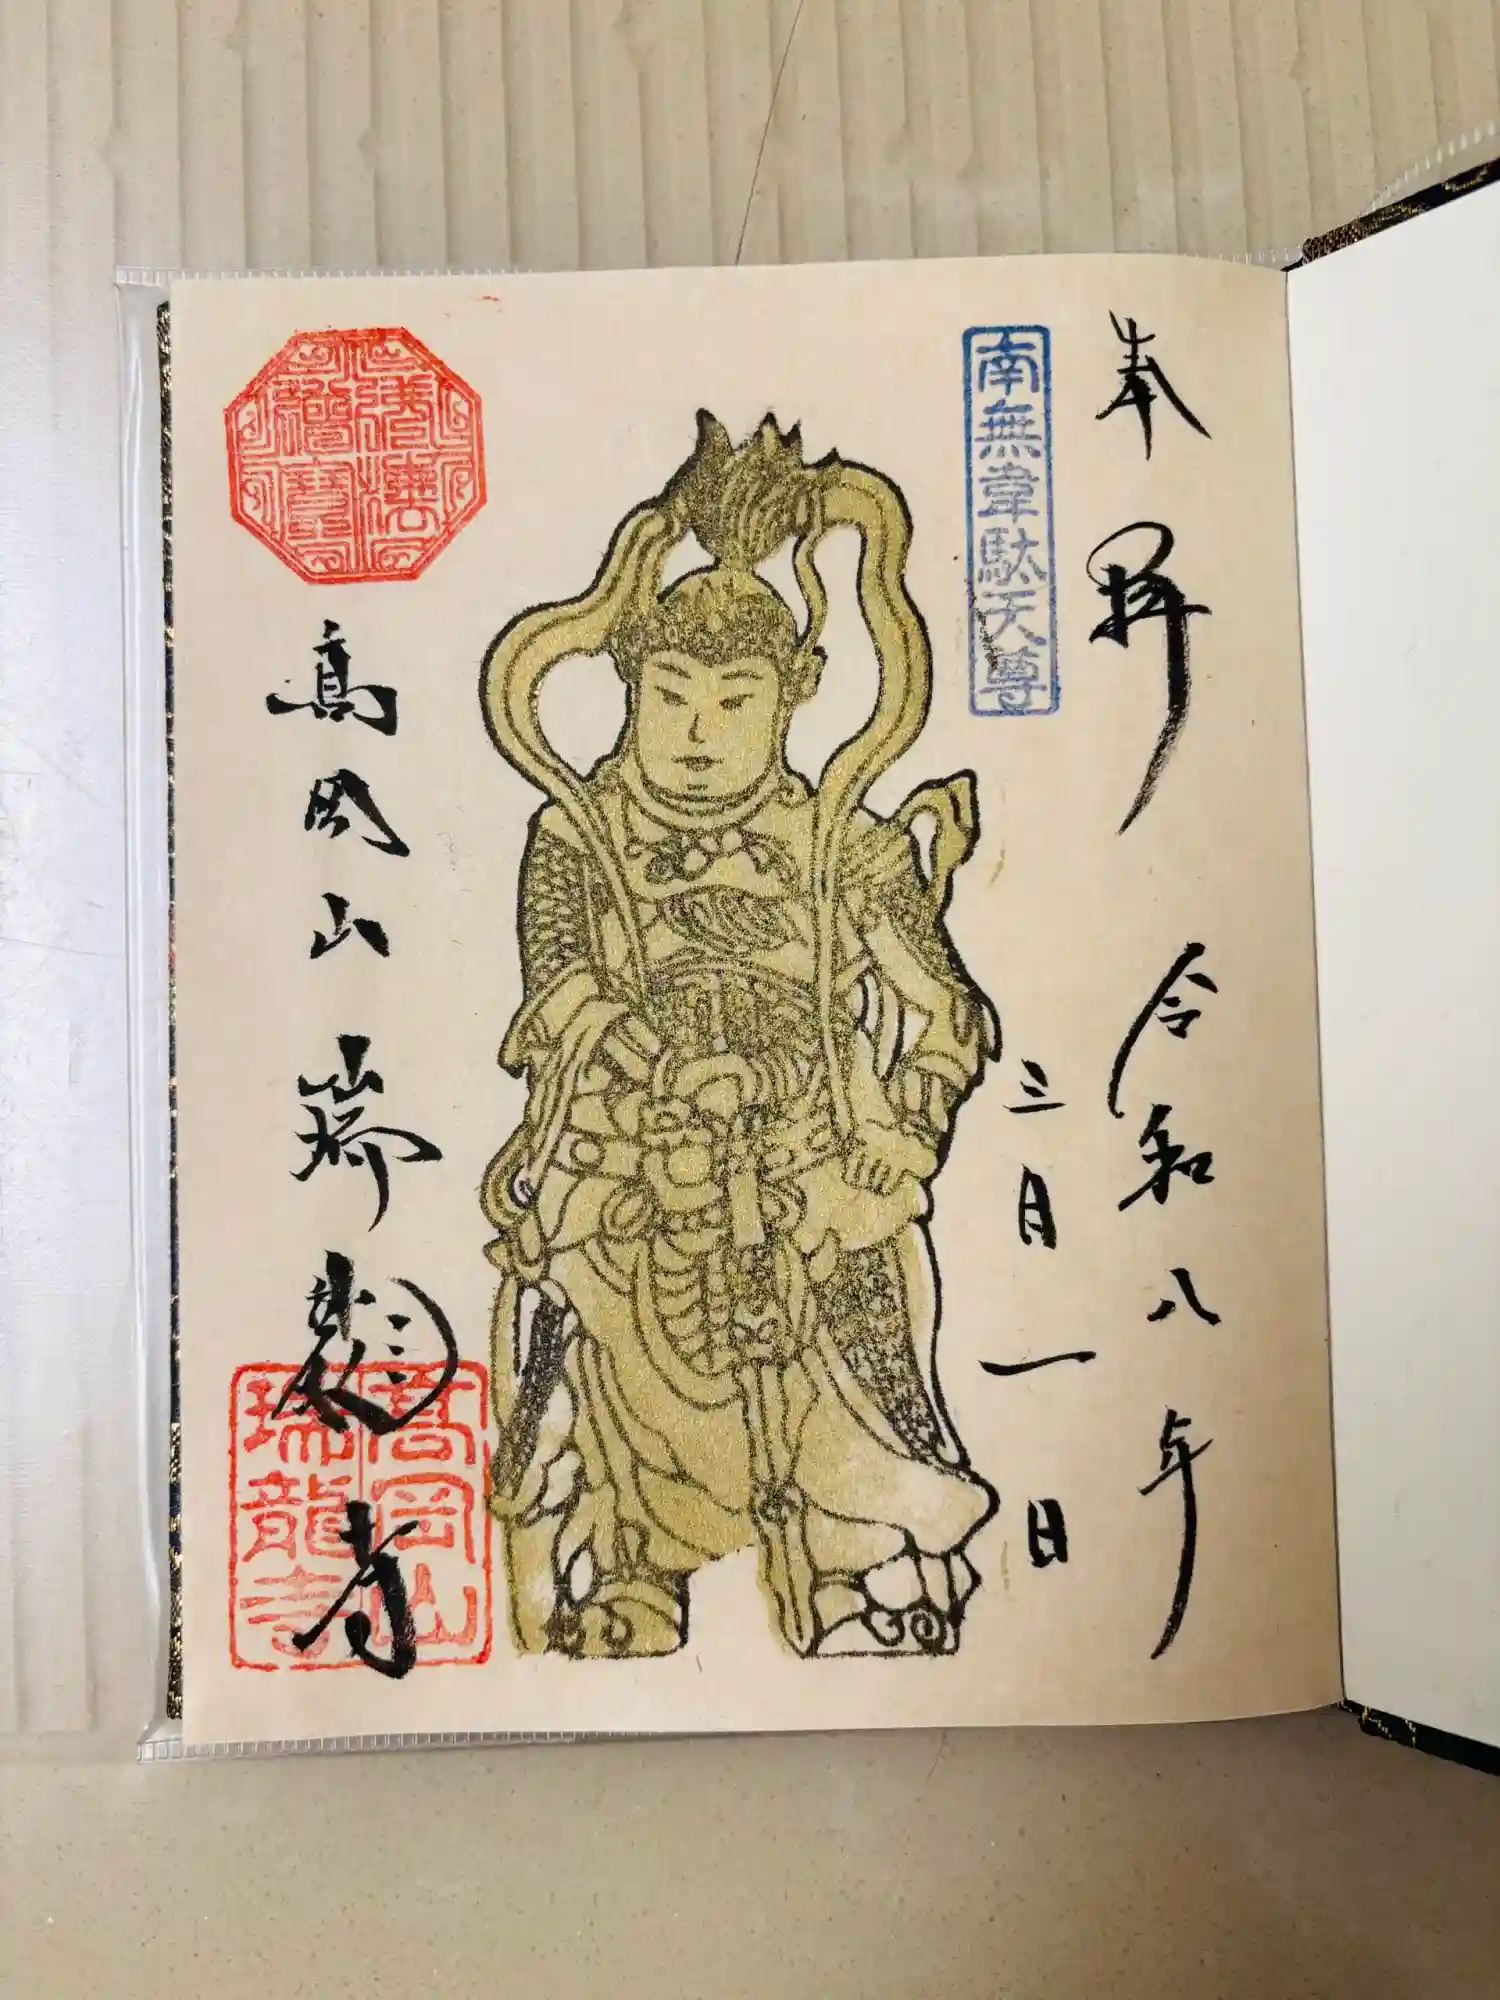 奉拝
令和八年
三月一日
南無韋駄天尊
高岡山瑞龍寺
高岡山
瑞龍寺